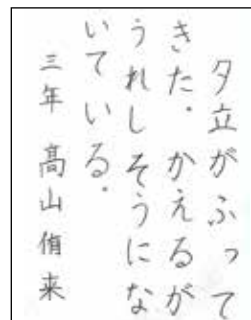 夕立がふって
きた。かえるが
うれしそうにな
いている。
三年 髙山侑来